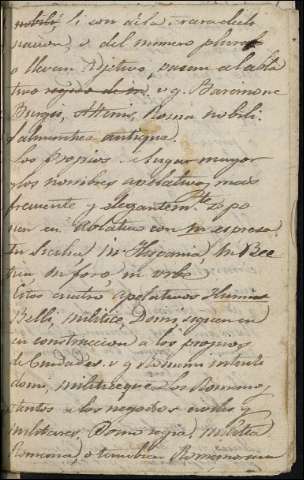 nobili, si son de la
nacion, o del número plural
o llevan adjetivo, pasan al abla
tivo v. g. Barcinone
Burgis, Athenis, Roma nobili
Salmantica antiqua.
Los propios de lugar mayor
y los nombres apelativos mas
frecuente y elegantemte. se po
nen en ablativo con in espreso,
in Sicilia in Hispania, in Bœ
tica in foro in urbe
Estos cuatro apelativos Humi
Belli, militiæ, Domi siguen
en construccion a los propios
de Ciudades. v. g.
domi, militiæque Los Romanos
atentos a los negocios civiles y
militares, Domo regia, militia
Romana, o tambien Romanorum